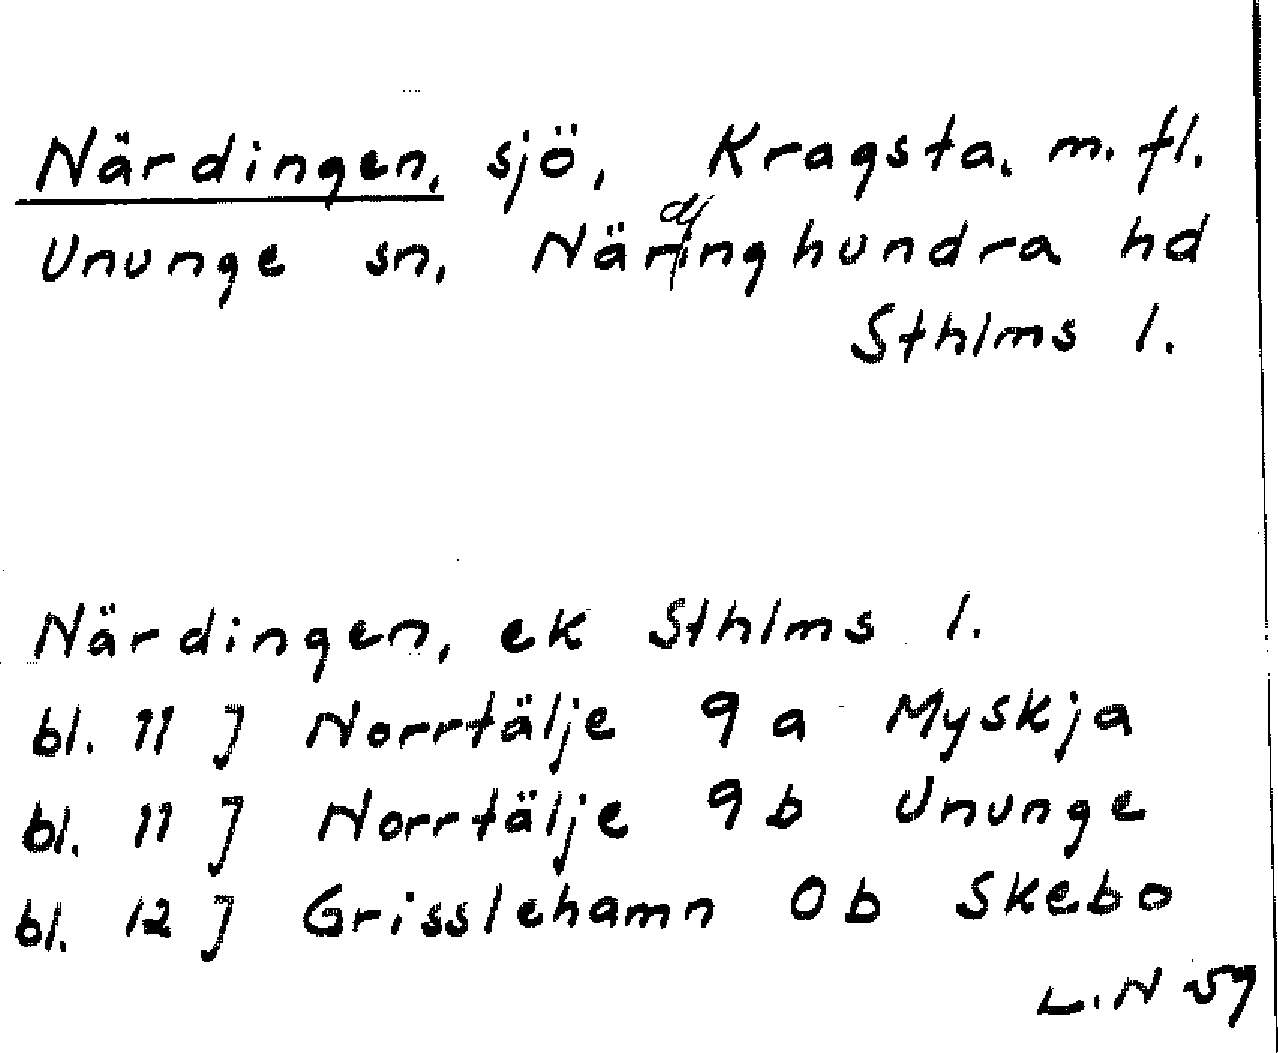 Närdingen, sjö, Kragsta. m. fl.
Ununge sn, Närdinghundra hd
Sthlms l.
Närdingen, ek Sthlms l.
bl. 11 J Norrtälje 9 a Myskja
bl. 11 J Norrtälje 9 b Ununge
bl. 12 J Grisslehamn 0 b Skebo
L.N 59